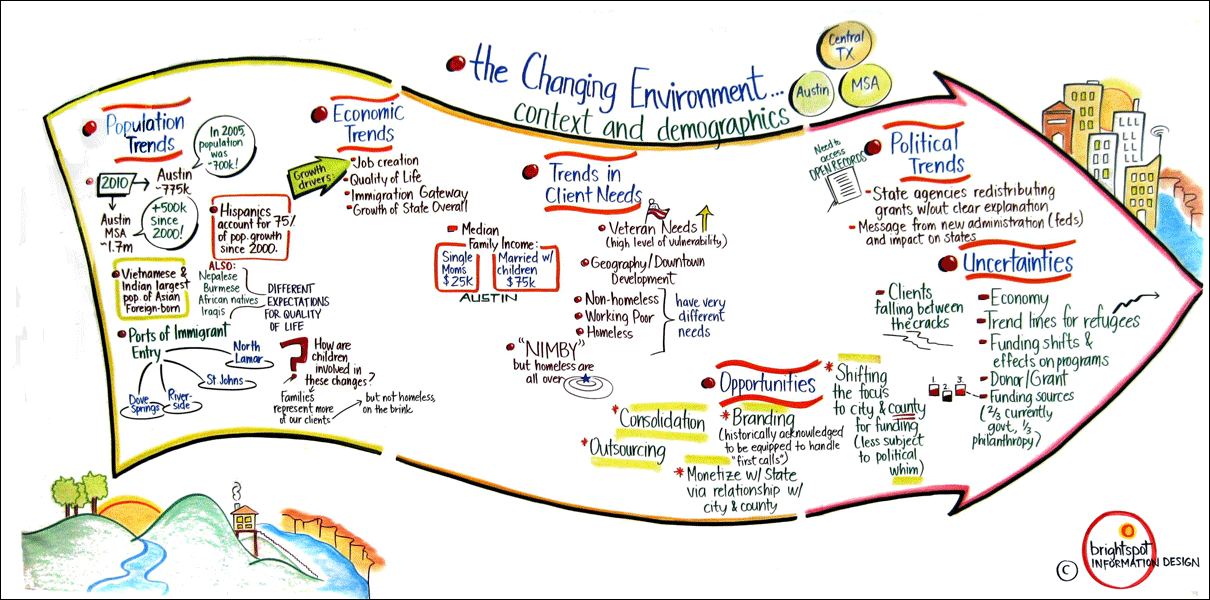 the Changing Environment...
context and demographics
Central
TX
Austin
MSA
Population
Trends
In 2005,
population
was
~700k!
2010
Austin
~775k
Austin
MSA
~1.7m
+500k
since
2000!
Hispanics
account for 75%
of pop. growth
since 2000.
Vietnamese &
Indian largest
pop. of Asian
Foreign-born
ALSO:
Nepalese
Burmese
African natives
Iraqis
DIFFERENT
EXPECTATIONS
FOR QUALITY
OF LIFE
Ports of Immigrant
Entry
North
Lamar
St. Johns
River-
side
Dove
Springs
?
How are
children
involved in
these changes?
Families
represent more
of our clients
but not homeless,
on the brink
Economic
Trends
Growth
drivers:
Job creation
Quality of Life
Immigration Gateway
Growth of State Overall
Trends in
Client Needs
Median
Family Income:
Single
Moms
$25k
Married w/
children
$75k
AUSTIN
Veteran Needs
(high level of vulnerability)
Geography/Downtown
Development
Non-homeless
Working Poor
Homeless
have very
different
needs
"NIMBY"
but homeless are
all over
Opportunities
Consolidation
Outsourcing
Branding
(historically acknowledged
to be equipped to handle
"first calls")
Monetize w/ State
via relationship w/
city & county
Shifting
the focus
to city & county
for funding
(less subject
to political
whim)
Political
Trends
Need to
access
OPEN RECORDS
State agencies redistributing
grants w/out clear explanation
Message from new administration (feds)
and impact on states
Uncertainties
Clients
falling between
the cracks
Economy
Trend lines for refugees
Funding shifts &
effects on programs
Donor/Grant
Funding sources
(2/3 currently
govt, 1/3
philanthropy)
1 2 3.
© brightspot
INFORMATION DESIGN